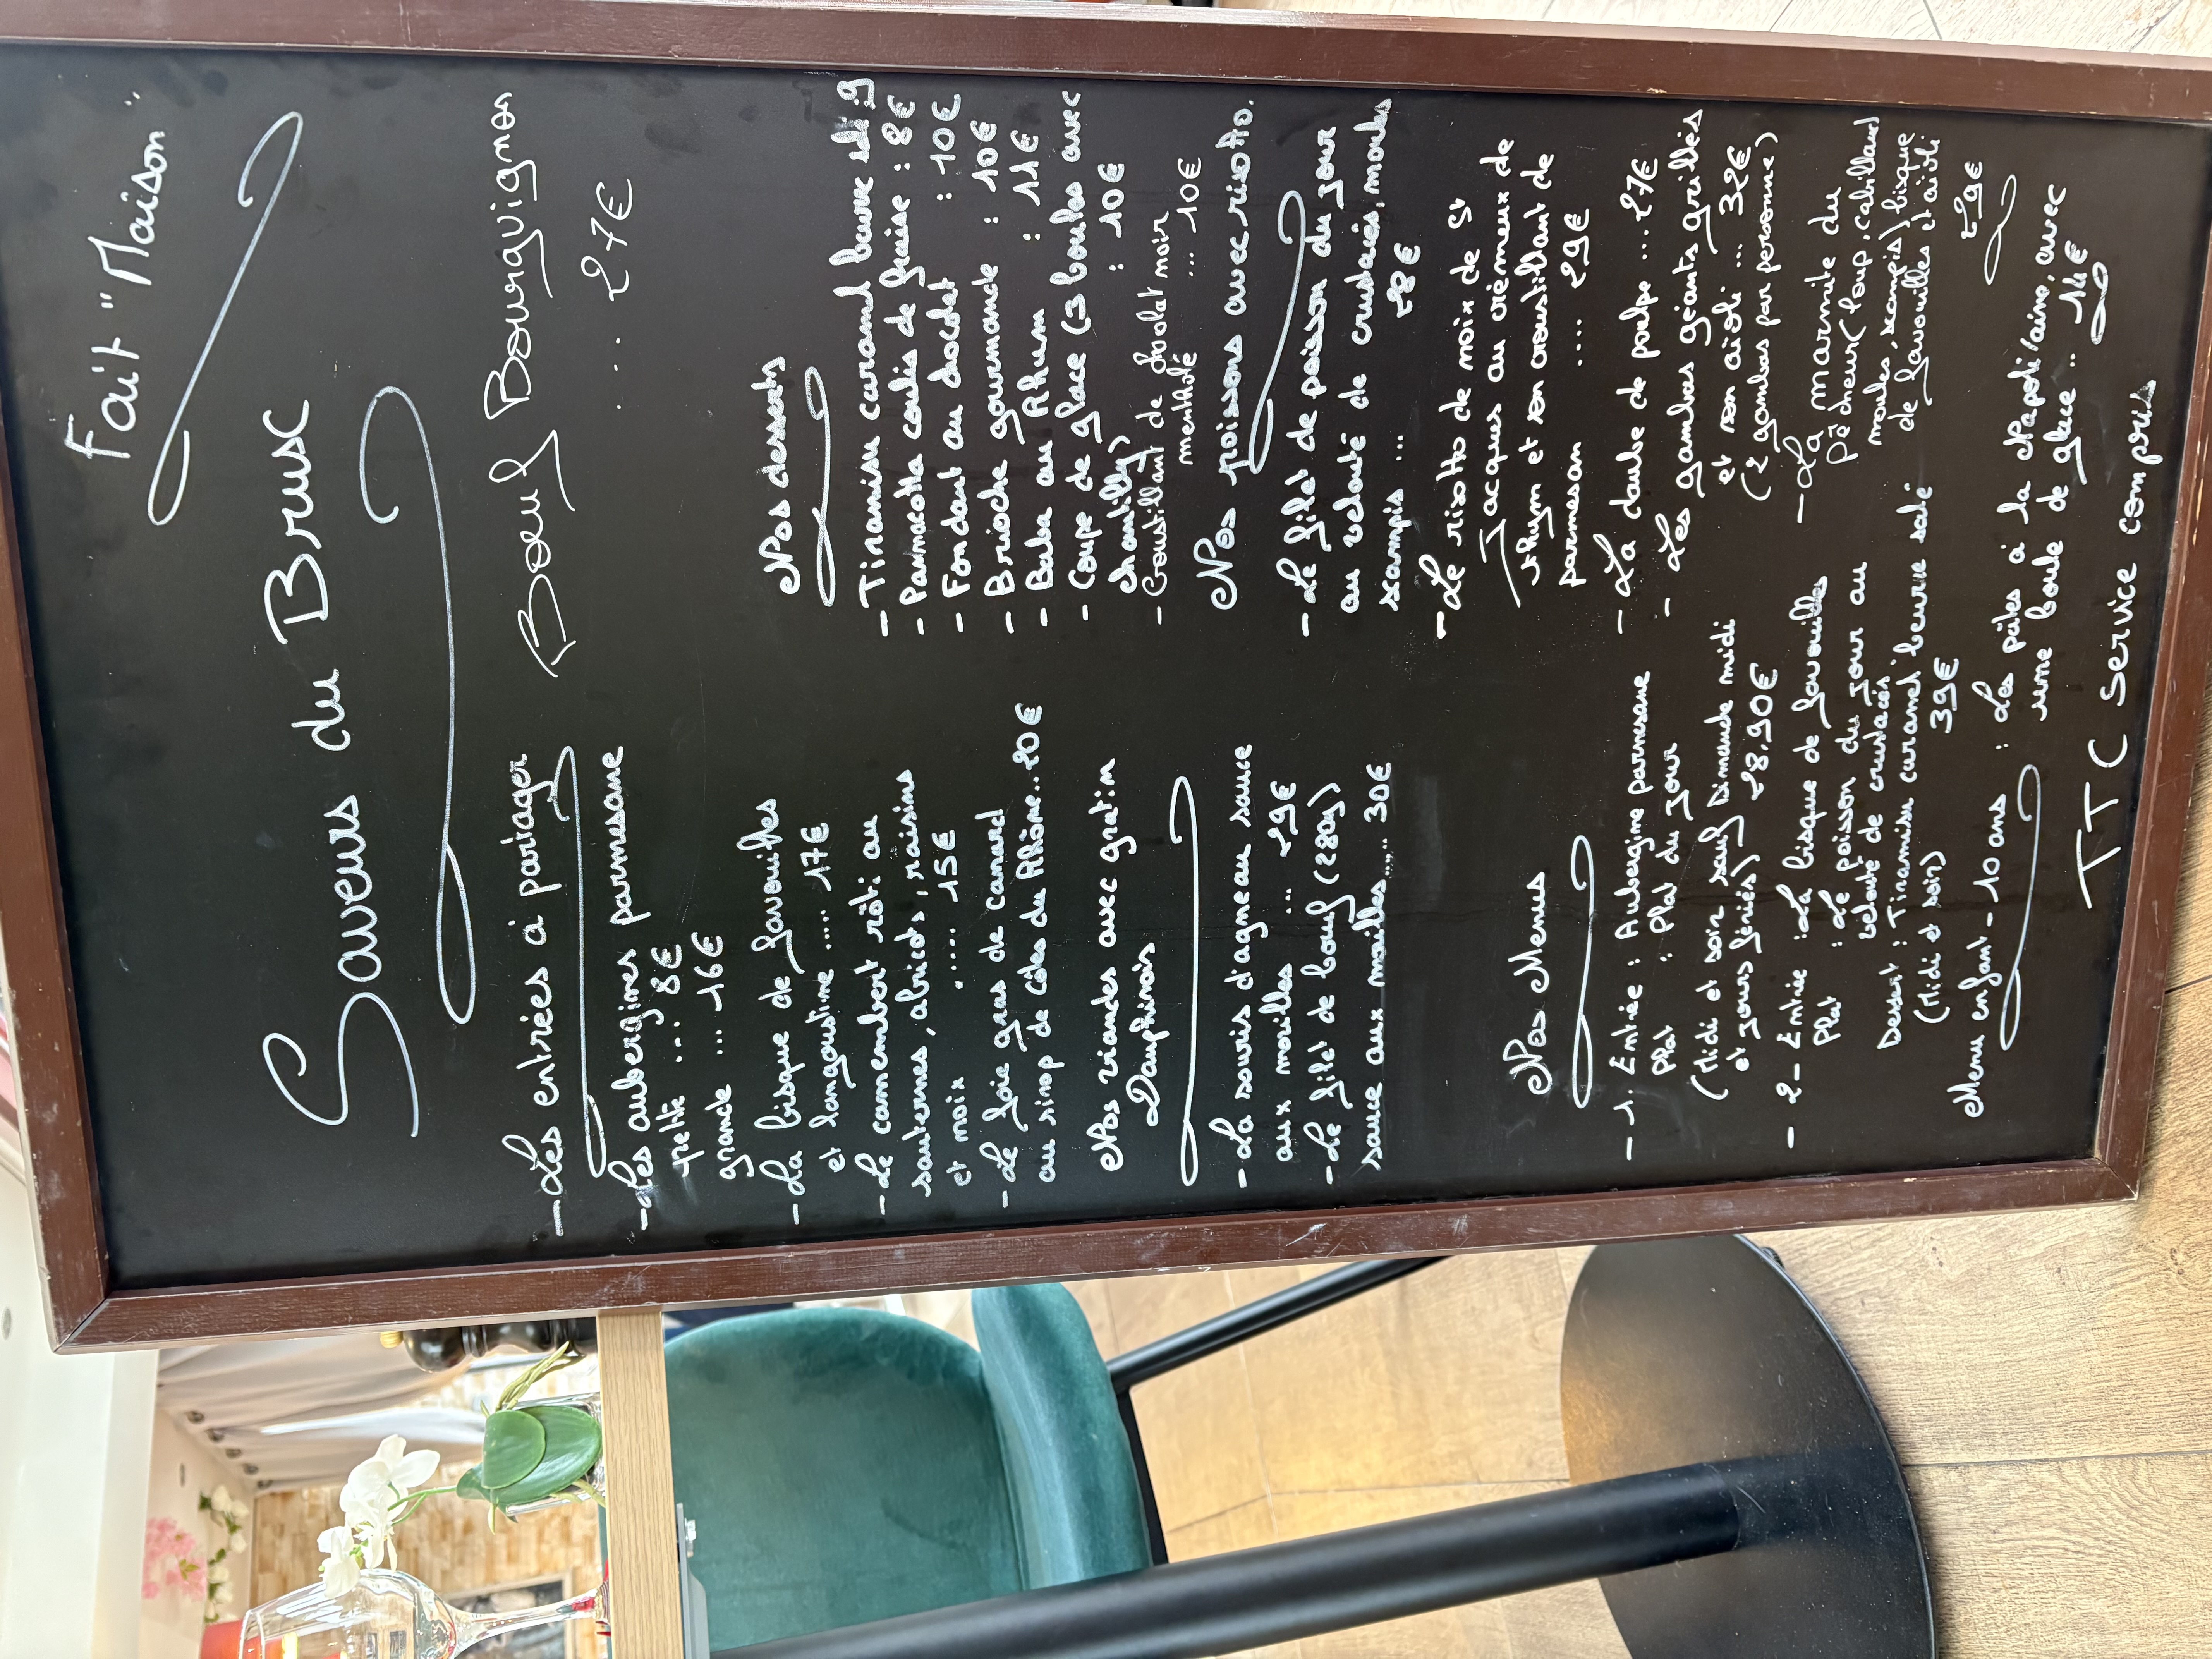 Fait "Maison"
Saveurs du Brusc
- Les entrées à partager
- Les aubergines parmesane
petite ... 8€
grande ... 16€
- La bisque de favouilles
et langoustine ..... 17€
- Le camembert rôti au
sauternes, abricots, raisins
et noix ..... 15€
- Le foie gras de canard
au sirop de côtes du Rhône...20€
Nos viandes avec gratin
Dauphinois
- La souris d'agneau sauce
aux morilles ... 29€
- Le filet de boeuf (280g)
sauce aux morilles..... 30€
Nos Menus
- 1. Entrée : Aubergine parmesane
Plat : Plat du jour
(Midi et soir sauf Dimanche midi
et jours fériés) 28,90€
- 2 - Entrée : La bisque de favouilles
Plat : Le poisson du jour au
velouté de crustacés
Dessert : Tiramisu caramel beurre salé
(Midi et soir) 39€
Boeuf Bourguignon
... 27€
Nos desserts
- Tiramisu caramel beurre salé 9
- Pannacotta coulis de fraise : 8€
- Fondant au chocolat : 10€
- Brioche gourmande : 10€
- Baba au Rhum : 11€
- Coupe de glace (3 boules avec
chantilly) : 10€
- Croustillant de chocolat noir
mentholé ... 10€
Nos poissons avec risotto.
- Le filet de poisson du jour
au velouté de crustacés, moules
scampis ... 28€
- Le risotto de noix de St
Jacques au crémeux de
thym et son croustillant de
parmesan .... 29€
- La daube de poulpe ... 27€
- Les gambas géants grillés
et son aïoli ... 32€
(2 gambas par personne)
- La marmite du
pêcheur (loup, cabillaud
moules, scampis) bisque
de favouilles et aïoli
29€
Menu enfant - 10 ans : Les pâtes à la Napolitaine, avec
une boule de glace .. 14€
TTC Service compris